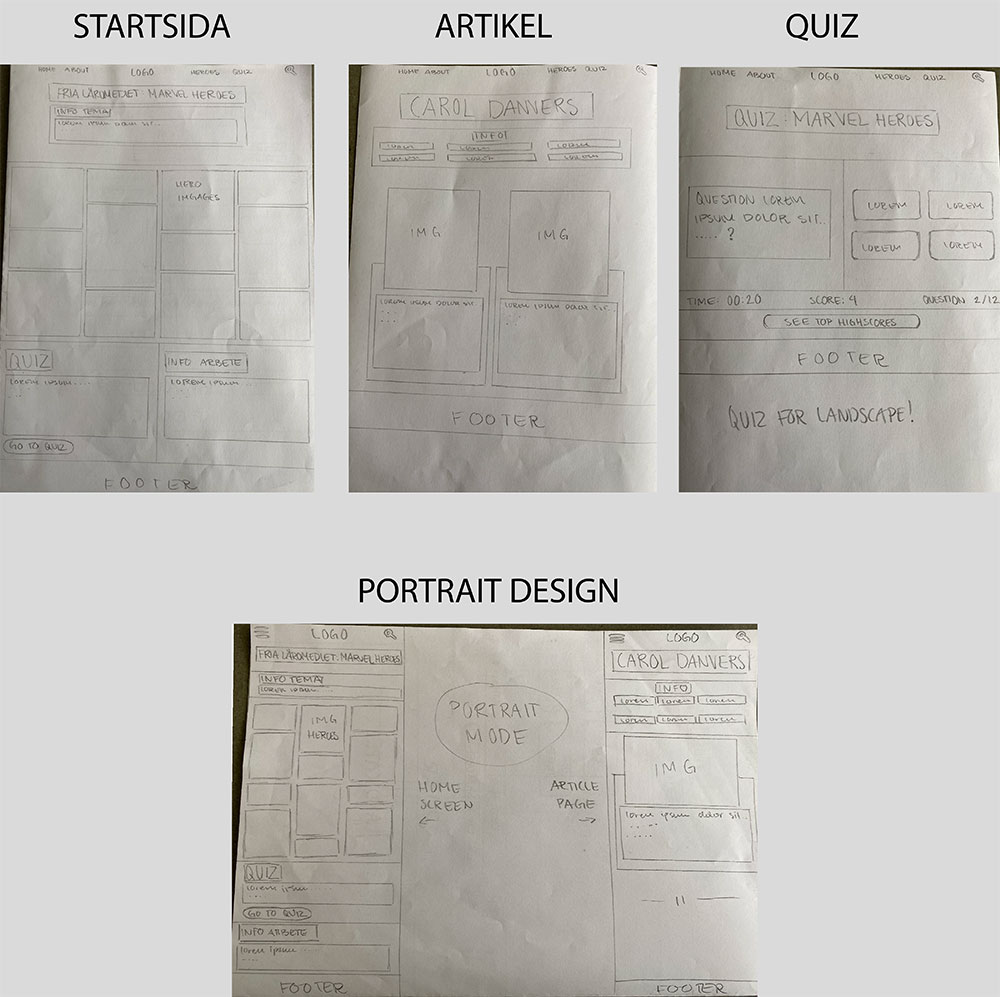 STARTSIDA
HOME ABOUT LOGO HEROES QUIZ
FRIA LÄROMEDLET: MARVEL HEROES
INFO TEMA
LOREM IPSUM DOLOR SIT..
HERO
IMGAGES
QUIZ
LOREM IPSUM....
...
GO TO QUIZ
INFO ARBETE
LOREM IPSUM
...
FOOTER
ARTIKEL
HOME ABOUT LOGO HEROES QUIZ
CAROL DANVERS
INFO
LOREM LOREM LOREM
LOREM LOREM LOREM
IMG IMG
LOREM IPSUM DOLOR SIT
LOREM IPSUM DOLOR SIT..
FOOTER
QUIZ
HOME ABOUT LOGO HEROES QUIZ
QUIZ: MARVEL HEROES
QUESTION LOREM
IPSUM DOLOR SIT...
..... ?
LOREM LOREM
LOREM LOREM
TIME: 00:20 SCORE: 4 QUESTION 2/12
SEE TOP HIGHSCORES
FOOTER
QUIZ FOR LANDSCAPE!
PORTRAIT DESIGN
LOGO
FRIA LÄROMEDLET: MARVEL HEROES
INFO TEMA
LOREM IPSUM
IMG
HEROES
QUIZ
Lorem ipsum ...
...
GO TO QUIZ
INFO ARBETE
Lorem Ipsum
....
FOOTER
PORTRAIT
MODE
HOME
SCREEN
←
ARTICLE
PAGE
→
LOGO
CAROL DANVERS
INFO
Lorem Lorem Lorem
Lorem Lorem Lorem
IMG
Lorem ipsum dolor sit..
— 11 —
FOOTER